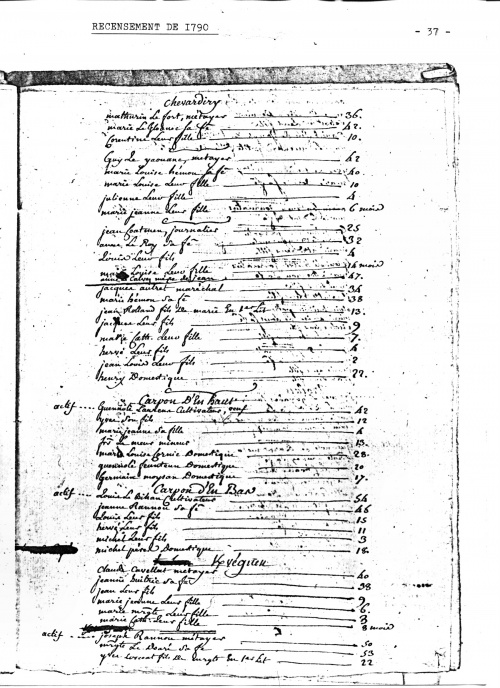 RECENSEMENT DE I790
- 37 -
Chevardiry
mathurin Le fort, métayer 36.
marie Le Gleonec sa fe 42.
Corentine Leur fille 10.
Guy Le yaouanc, metayer 42
marie Louise hémon sa fe 40.
marie Louise Leur fille 10
julienne Leur fille 4
marie jeanne Leur fille 6 mois
jean Coatmen, journalier 25
anne Le Roy sa fe 32
Louis Leur fils 4
marie Louise Leur fille 14 mois
mère de jean 47.
jacques autret maréchal 34
marie hémon sa fe 38
jean Rolland fils de marie En 1er Lit 13.
jacques Leur fils 9
marie Cath. Leur fille 7.
hervé Leur fils 4
jean Louis Leur fils 2
henry Domestique 22.
Carpon D'En haut
actif .... Guenolé Laurens Cultivateur, veuf 42
yves son fils 12
marie jeanne sa fille 4
fs Le meur mineur 13.
marie Louise Cornic Domestique 28.
feunteun Domestique 20
Germain moysan Domestique 17.
Carpon d'En Bas
actif .... Louis Le Bihan Cultivateur 54
jeanne Rannou sa fe 46
Louis Leur fils 15
hervé Leur fils 11
michel Leur fils 3
michel Domestique 18.
Kvégnen
Claude Cavellat métayer 40
jeanne sa fe 38
jean Leur fils
marie jeanne Leur fille 9.
marie mrgte Leur fille 6.
marie Cath. Leur fille 3
8 mois
actif .. joseph Rannou métayer 50
mrgte Le Doaré sa fe 53
yves fils de mrgte En 1er Lit 22